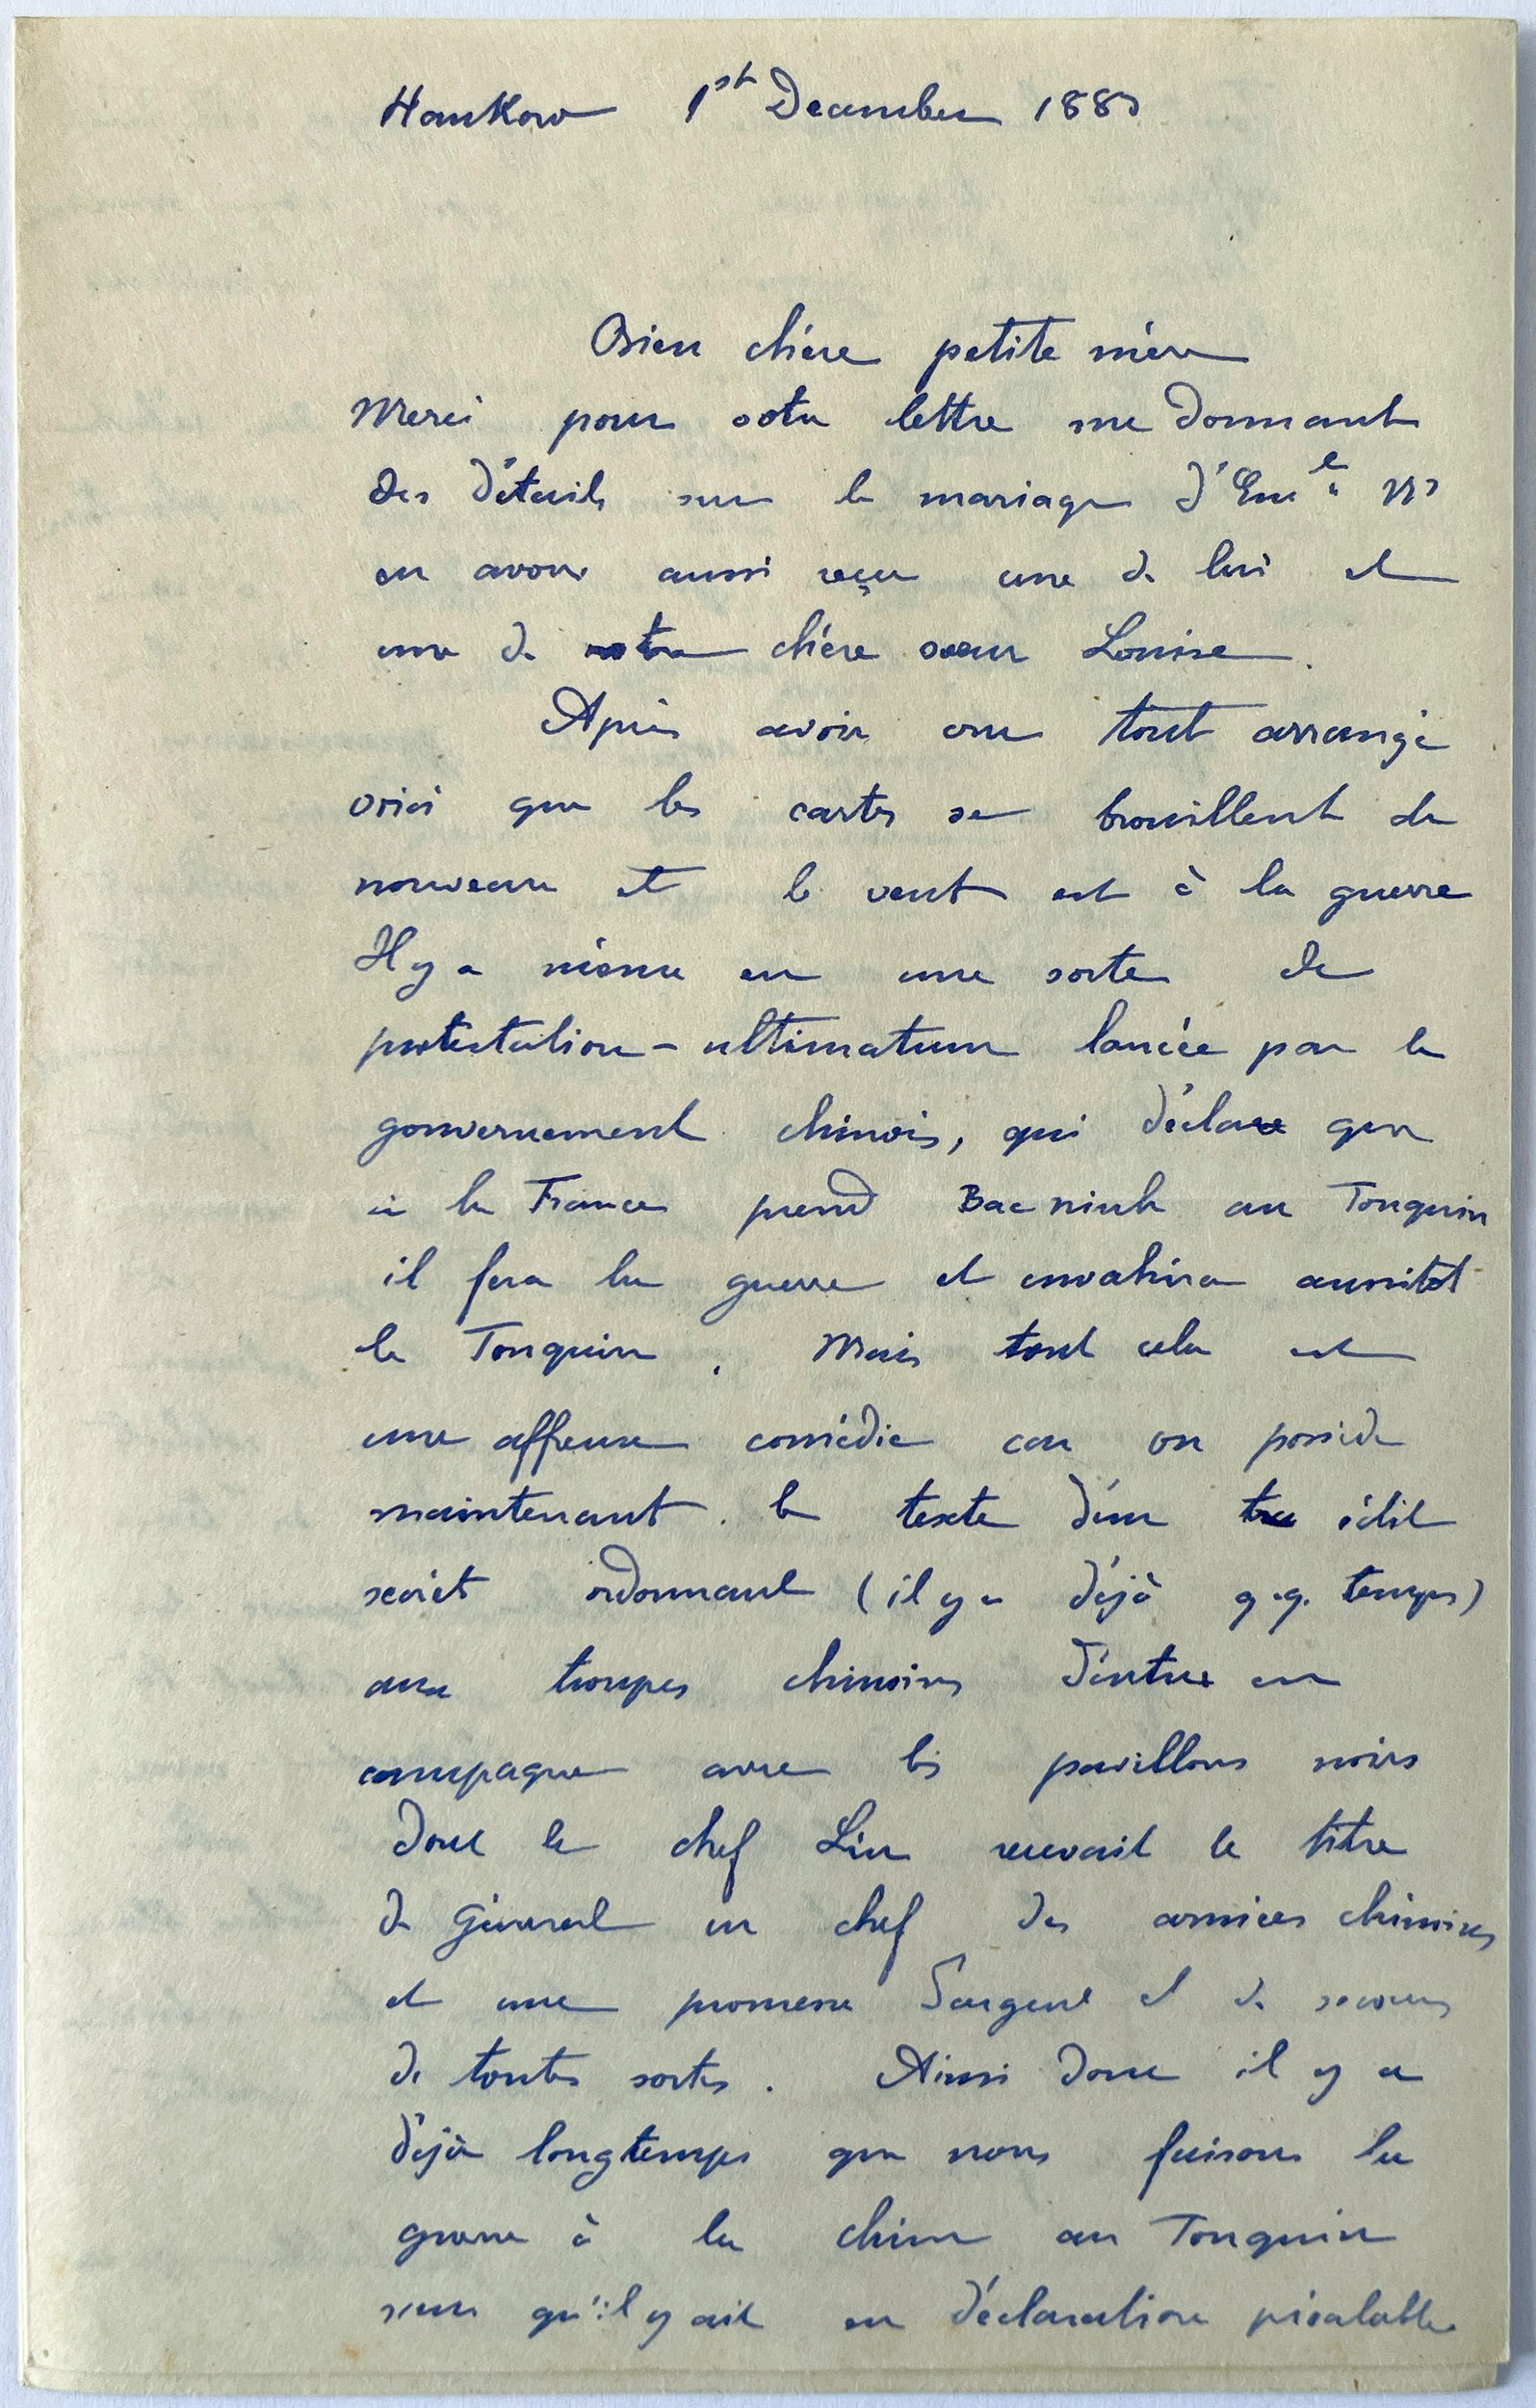 Hankow 1st December 1883
Bien chère petite mère
Merci pour votre lettre me donnant
des détails sur le mariage d'Emle Ns
en avons aussi reçu une de lui et
une de notre chère sœur Louise.
Après avoir cru tout arrangé
voici que les cartes se brouillent de
nouveau et le vent est à la guerre
Il y a même eu une sorte de
protestation - ultimatum lancée par le
gouvernement chinois, qui déclare que
si la France prend Bac ninh au Tonquin
il fera la guerre et envahira aussitot
le Tonquin. Mais tout cela est
une affreuse comédie car on possède
maintenant le texte d'un édit
secret ordonnant (il y a déjà q.q. temps)
aux troupes chinoises d'entrer en
campagne avec les pavillons noirs
dont le chef Liu recevait le titre
de Général en chef des armées chinoises
et une promesse d'argent et de secours
de toutes sortes. Ainsi donc il y a
déjà longtemps que nous faisons la
guerre à la chine au Tonquin
sans qu'il y ait eu déclaration préalable